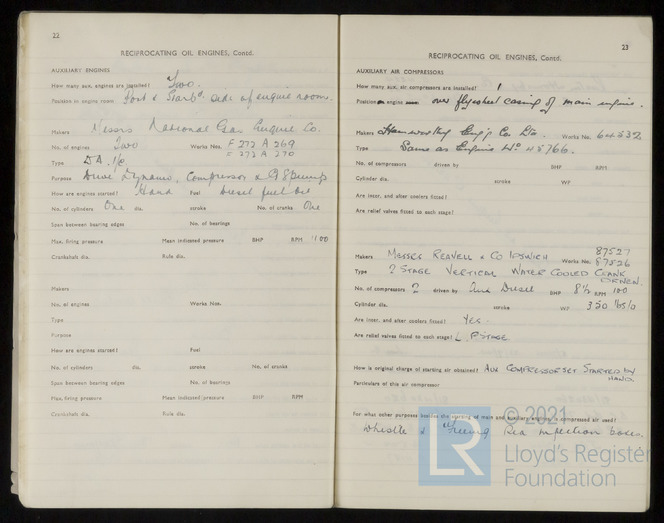 22
RECIPROCATING OIL ENGINES, Contd.
AUXILIARY ENGINES
How many aux. engines are installed? Two.
Position in engine room Port & Starbd side of engine room.
Makers Messrs National Gas Engine Co.
No. of engines Two Works Nos. F 272 A 269
F 272 A 270
Type
Purpose Drive Dynamo, Compressor & Pump
How are engines started? Hand Fuel Diesel fuel oil
No. of cylinders One dia. stroke No. of cranks One
Span between bearing edges No. of bearings
Max. firing pressure Mean indicated pressure BHP RPM
Crankshaft dia. Rule dia.
Makers
No. of engines Works Nos.
Type
Purpose
How are engines started? Fuel
No. of cylinders dia. stroke No. of cranks
Span between bearing edges No. of bearings
Max. firing pressure Mean indicated pressure BHP RPM
Crankshaft dia. Rule dia.
23
RECIPROCATING OIL ENGINES, Contd.
AUXILIARY AIR COMPRESSORS
How many aux. air compressors are installed? 1
Position engine over flywheel casing of main engine.
Makers Hamworthy Eng'g Co Ltd. Works No. 64532
Type Same as Engine No 45766.
No. of compressors driven by BHP RPM
Cylinder dia. stroke WP
Are inter. and after coolers fitted?
Are relief valves fitted to each stage?
Makers Messrs Reavell & Co Ipswich Works No. 87527
87526
Type 2 Stage Vertical Water Cooled Crank
Driven.
No. of compressors 2 driven by Aux Diesel BHP 8½ RPM
Cylinder dia. stroke WP 350 lbs/□
Are inter. and after coolers fitted? Yes.
Are relief valves fitted to each stage? L.P. Stage
How is original charge of starting air obtained? Aux Compressor set started by
hand.
Particulars of this air compressor
For what other purposes besides the starting of main and auxiliary engines is compressed air used?
Whistle & Freeing Sea injection boxes.
© 2021
LR
Lloyd's Register
Foundation